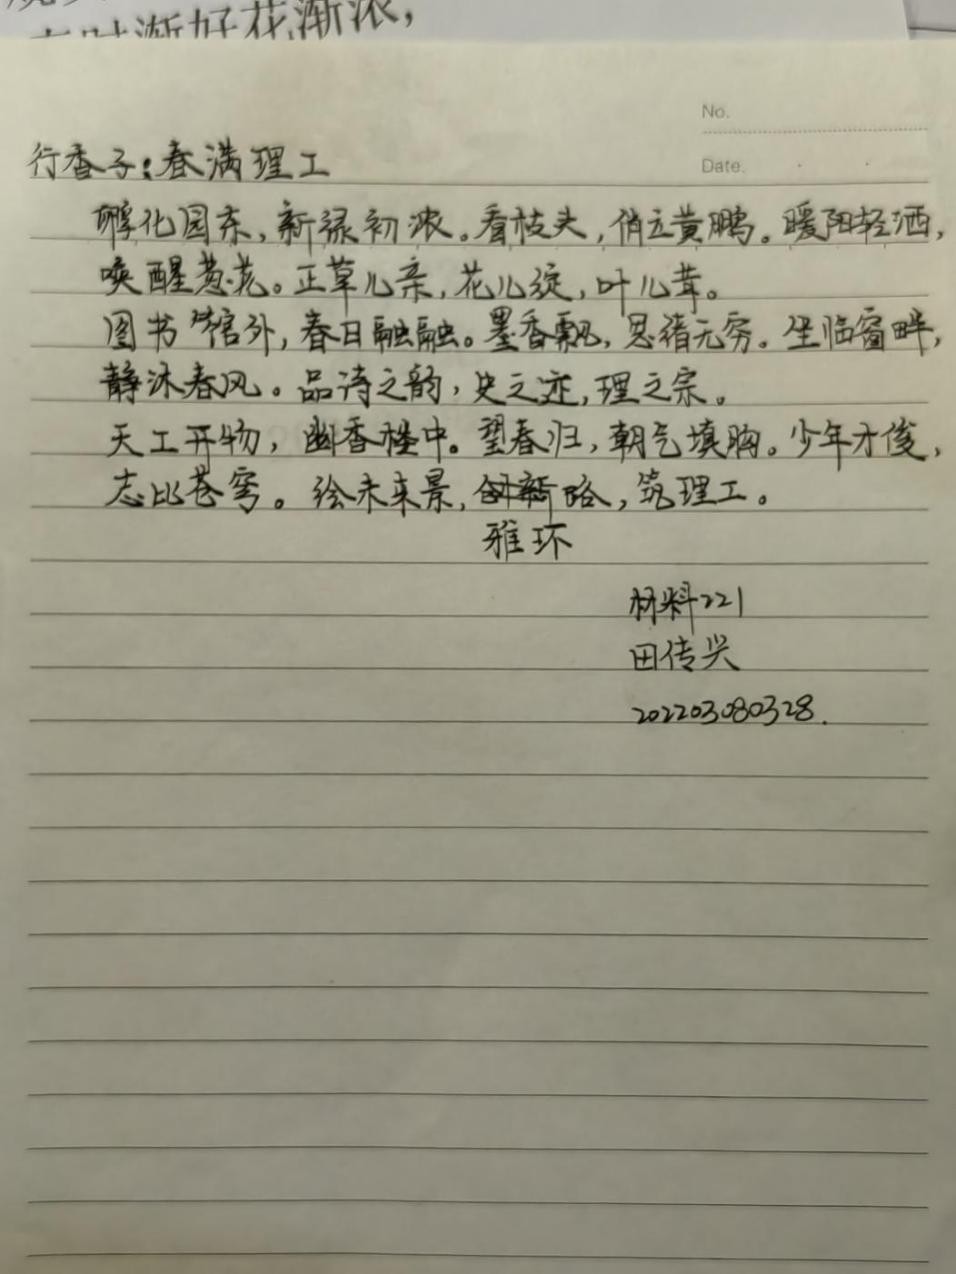 有时渐好花渐浓，
No.
Date.
行香子：春满理工
孵化园东，新绿初浓。看枝头，俏立黄鹏。暖阳轻洒，
唤醒葱茏。正草儿亲，花儿绽，叶儿茸。
图书馆外，春日融融。墨香飘，思绪无穷。坐临窗畔，
静沐春风。品诗之韵，史之迹，理之宗。
天工开物，幽香楼中。望春归，朝气填胸。少年才俊，
志比苍穹。绘未来景，创新路，筑理工。
雅环
材料221
田传兴
202203080328.